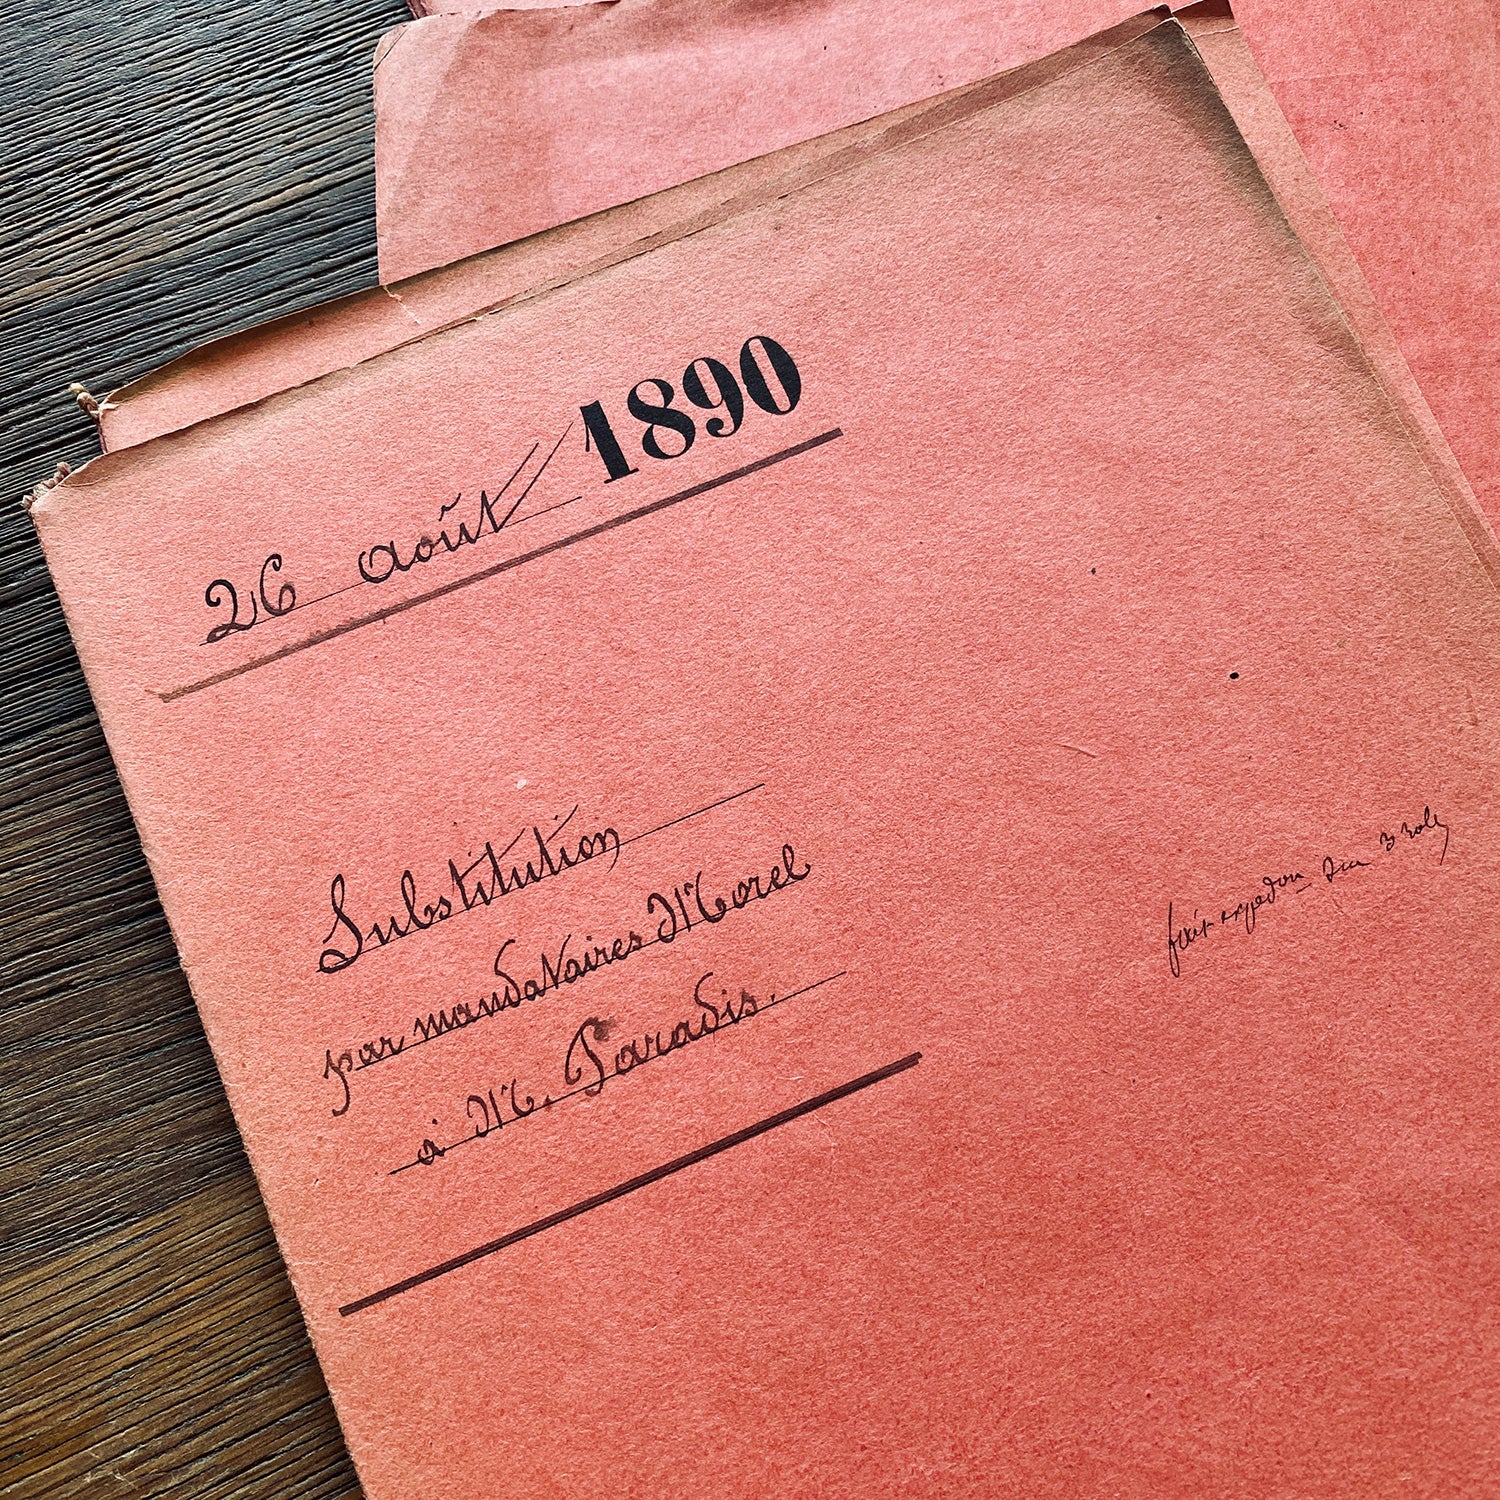 26 août 1890
Substitution
par mandataires Morel
à M. Paradis.
fait expedon sur 3 roles